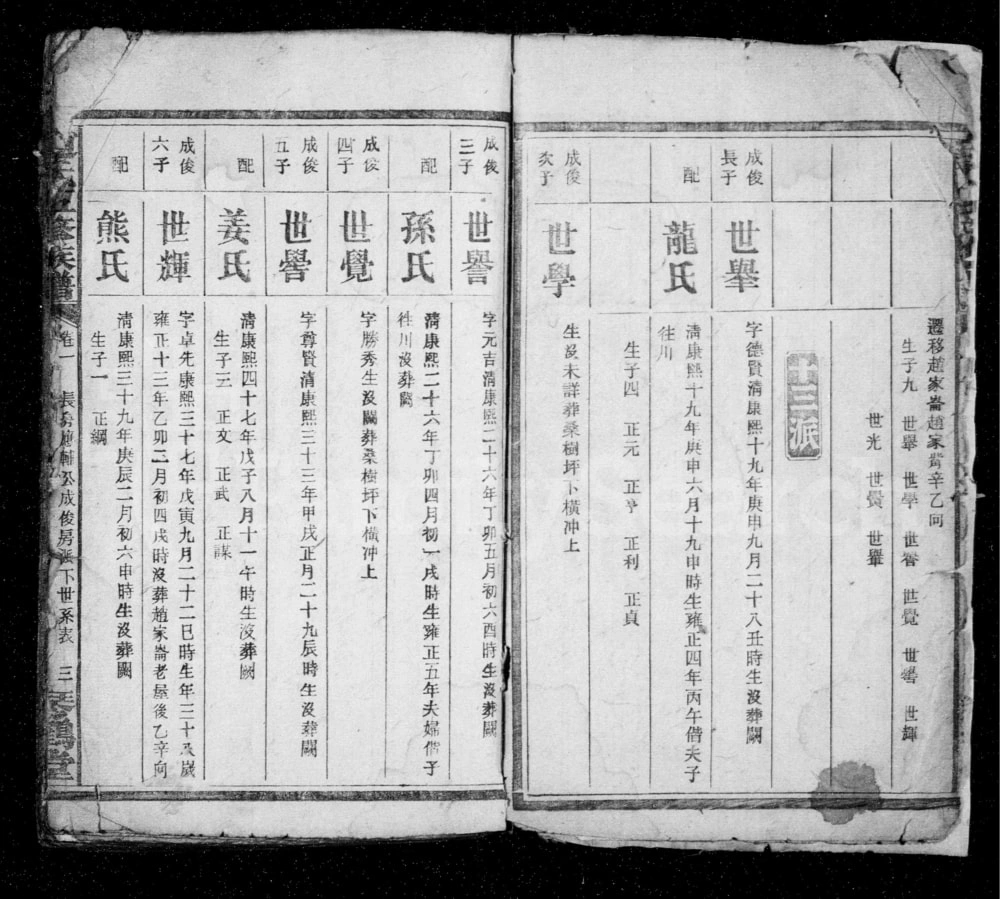 遷移趙家崙趙家嘴辛乙向
生子九 世舉 世學 世譽 世覺 世嚳 世輝
世光 世黌 世轝
十三派
成俊長子
世舉
字德賢清康熙十九年庚申九月二十八丑時生沒葬闕
配
龍氏
清康熙十九年庚申六月十九申時生雍正四年丙午偕夫子
往川
生子四 正元 正亨 正利 正貞
成俊次子
世學
生沒未詳葬桑樹坪下橫冲上
成俊三子
世譽
字元吉清康熙二十六年丁卯五月初六酉時生沒葬闕
配
孫氏
清康熙二十六年丁卯四月初一戌時生雍正五年夫婦偕子
往川沒葬闕
成俊四子
世覺
字勝秀生沒闕葬桑樹坪下橫冲上
成俊五子
世嚳
字尊賢清康熙三十三年甲戌正月二十九辰時生沒葬闕
配
姜氏
清康熙四十七年戊子八月十一午時生沒葬闕
生子三 正文 正武 正謀
成俊六子
世輝
字卓先康熙三十七年戊寅九月二十二巳時生年三十及歲
雍正十三年乙卯二月初四戌時沒葬趙家崙老屋後乙辛向
配
熊氏
清康熙三十九年庚辰二月初六申時生沒葬闕
生子一 正綱
修族譜 卷一 長房 輔公成俊房派下世系表 三